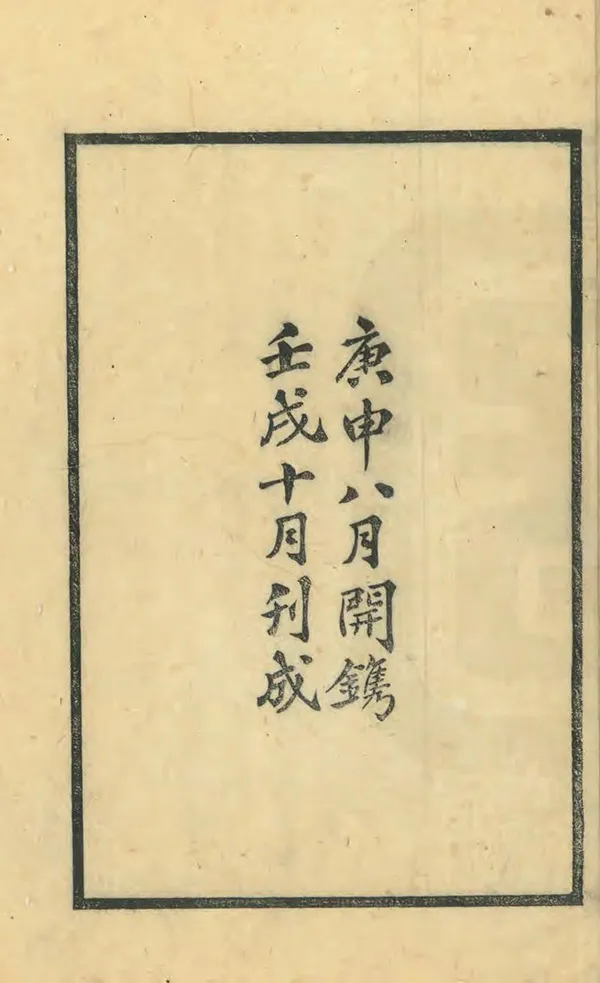 庚申八月開鐫
壬戌十月刊成